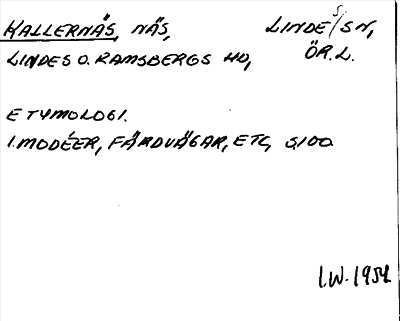 KALLERNÄS, NÄS, LINDE/S SN,
LINDES O. RAMSBERGS HD, ÖR.L.
ETYMOLOGI.
I. MODÉER, FÄRDVÄGAR, ETC, S.100.
I.W. 1954